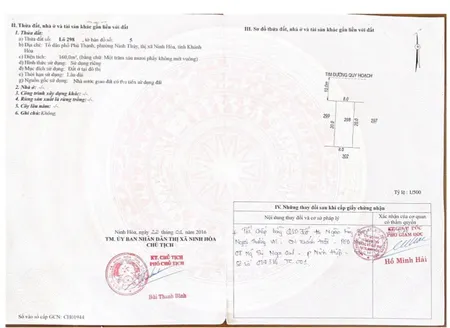 II. Thửa đất, nhà ở và tài sản khác gắn liền với đất
1. Thửa đất:
a) Thửa đất số: Lô 298 , tờ bản đồ số: 5
b) Địa chỉ: Tổ dân phố Phú Thạnh, phường Ninh Thủy, thị xã Ninh Hòa, tỉnh Khánh
Hòa
c) Diện tích: 160,0m², (bằng chữ: Một trăm sáu mươi phẩy không mét vuông)
d) Hình thức sử dụng: Sử dụng riêng
đ) Mục đích sử dụng: Đất ở tại đô thị
e) Thời hạn sử dụng: Lâu dài
g) Nguồn gốc sử dụng: Nhà nước giao đất có thu tiền sử dụng đất
2. Nhà ở: -/-
3. Công trình xây dựng khác: -/-
4. Rừng sản xuất là rừng trồng: -/-
5. Cây lâu năm: -/-
6. Ghi chú: Không
Ninh Hòa, ngày 22 tháng 2016
TM. ỦY BAN NHÂN DÂN THỊ XÃ NINH HÒA
CHỦ TỊCH
KT. CHỦ TỊCH
PHÓ CHỦ TỊCH
Bùi Thanh Bình
Số vào sổ cấp GCN:
III. Sơ đồ thửa đất, nhà ở và tài sản khác gắn liền với đất
TIM ĐƯỜNG QUY HOẠCH
10.0m
8.0
299
20.0
298
20.0
297
8.0
302
Tỷ lệ : 1/500
IV. Những thay đổi sau khi cấp giấy chứng nhận
Nội dung thay đổi và cơ sở pháp lý
Xác nhận của cơ quan
có thẩm quyền
Thế chấp bằng QSD đất
PHÓ GIÁM ĐỐC
Hồ Minh Hải